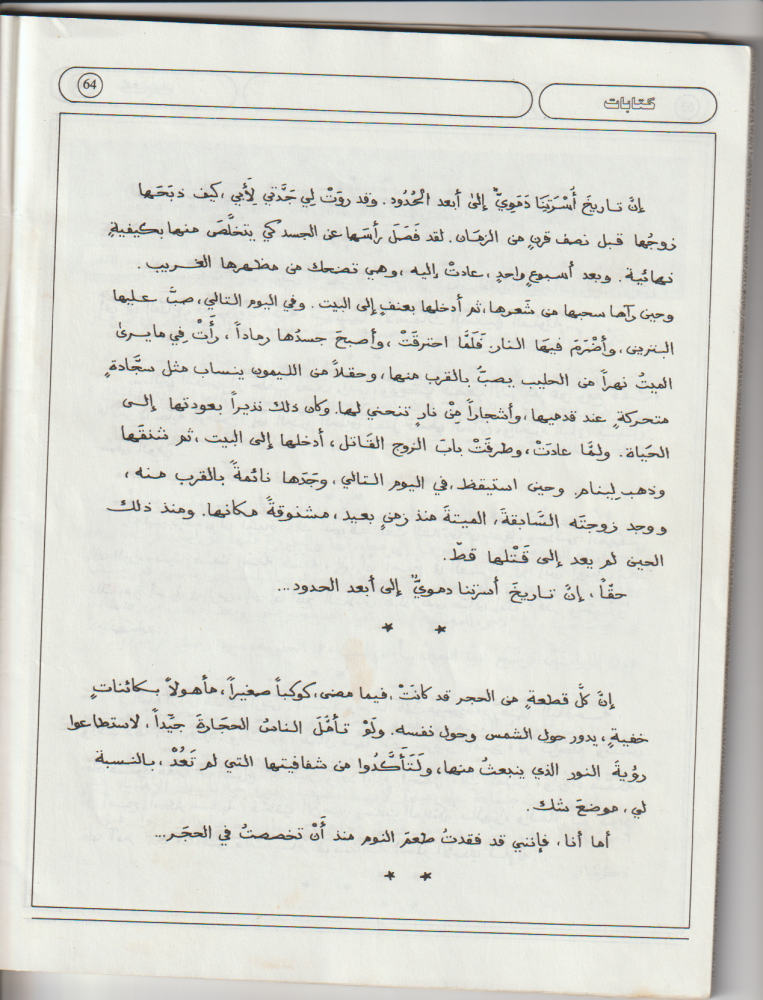 كتابات
64
إنَّ تاريخَ أُسْرَتِنَا دَمَوِيٌّ إلىٰ أبعد الحُدُود. وقد روَتْ لي جَدَّتي لِأَبي، كيف ذبَحَها
زوجُها قبل نصف قرنٍ من الزمان. لقد فَصَلَ رأسَها عن الجسد كي يتخلَّصَ منها بكيفيةٍ
نهائية. وبعد أسبوعٍ واحدٍ، عادتْ إليه، وهي تضحك من مظهرها الغريب.
وحين رآها سحبها من شَعرها، ثم أدخلها بعنفٍ إلى البيت. وفي اليوم التالي، صبَّ عليها
البنزين، وأضْرَمَ فيها النار. فَلَمَّا احترقَتْ، وأصبحَ جسدُها رماداً، رأتْ في ما يرىٰ
الميتُ نهراً من الحليب يصبُّ بالقرب منها، وحقلاً من الليمون ينساب مثل سجَّادةٍ
متحركةٍ عند قدميها، وأشجاراً مِنْ نارٍ تنحني لها. وكان ذلك نذيراً بعودتها إلى
الحَياة. ولمَّا عادتْ، وطرقَتْ بابَ الزوج القَاتل، أدخلها إلى البيت، ثم شنقَها
وذهب لِينام. وحين استيقظ، في اليوم التالي، وجَدَها نائمةً بالقرب منه،
ووجد زوجتَه السَّابقةَ، الميتةَ منذ زمنٍ بعيد، مشنوقةً مكانها. ومنذ ذلك
الحين لم يعد إلى قَتْلها قطّ.
حقّاً، إنَّ تاريخَ أسرتنا دمويٌّ إلى أبعد الحدود...
* *
إنَّ كلَّ قطعةٍ من الحجر قد كانَتْ، فيما مضى، كوكباً صغيراً، مأهولاً بكائناتٍ
خفيةٍ، يدور حول الشمس وحول نفسه. ولَوْ تأمَّلَ الناسُ الحجَارةَ جيِّداً، لاستطاعوا
رؤيةَ النور الذي ينبعثُ منها، ولَتَأَكَّدُوا من شفافيتها التي لم تَعُدْ، بالنسبة
لي، موضعَ شك.
أما أنا، فإنني قد فقدتُ طعمَ النوم منذ أَنْ تخصصتُ في الحجَر...
* *